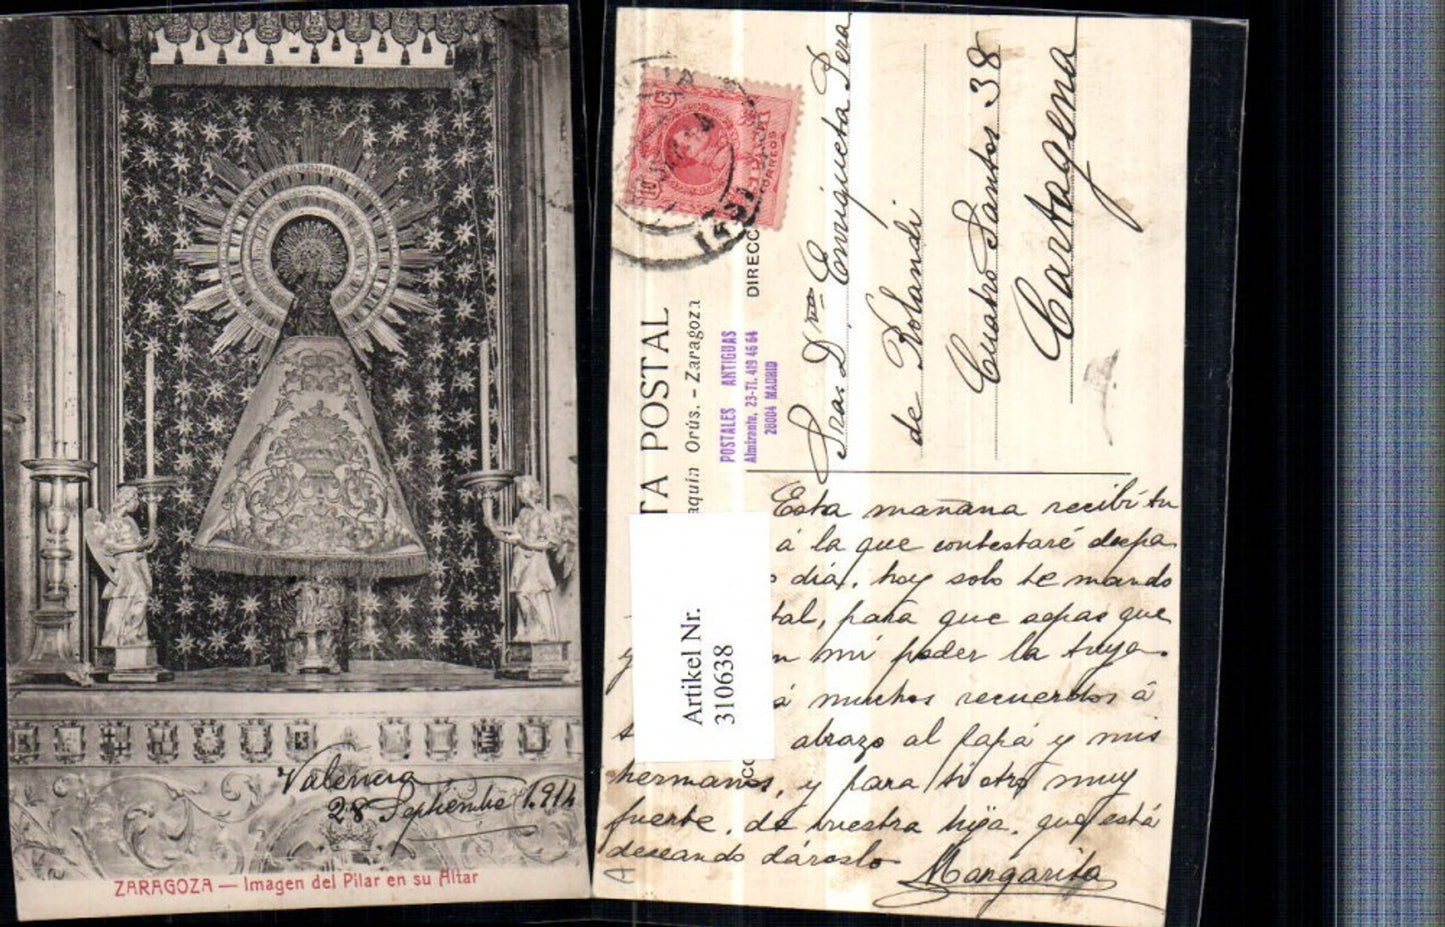 Valencia
28 Septiembre 1.914
ZARAGOZA — Imagen del Pilar en su Altar
TA POSTAL
aquin Orús. - Zaragoza
POSTALES ANTIGUAS
Almirante, 23-Tl. 419 46 64
28004 MADRID
DIRECC
CORREOS
Sra. Dña E Enriqueta Pera
de Rolandi
Cuatro Santos 38
Cartagena
Esta mañana recibí tu
á la que contestaré
día, hoy solo te mando
tal, para que sepas que
mi poder la tuya.
muchos recuerdos á
abrazo al papá y mis
hermanos, y para ti otro muy
fuerte, de vuestra hija, que está
deseando dároslo
Margarita
Artikel Nr.
310638